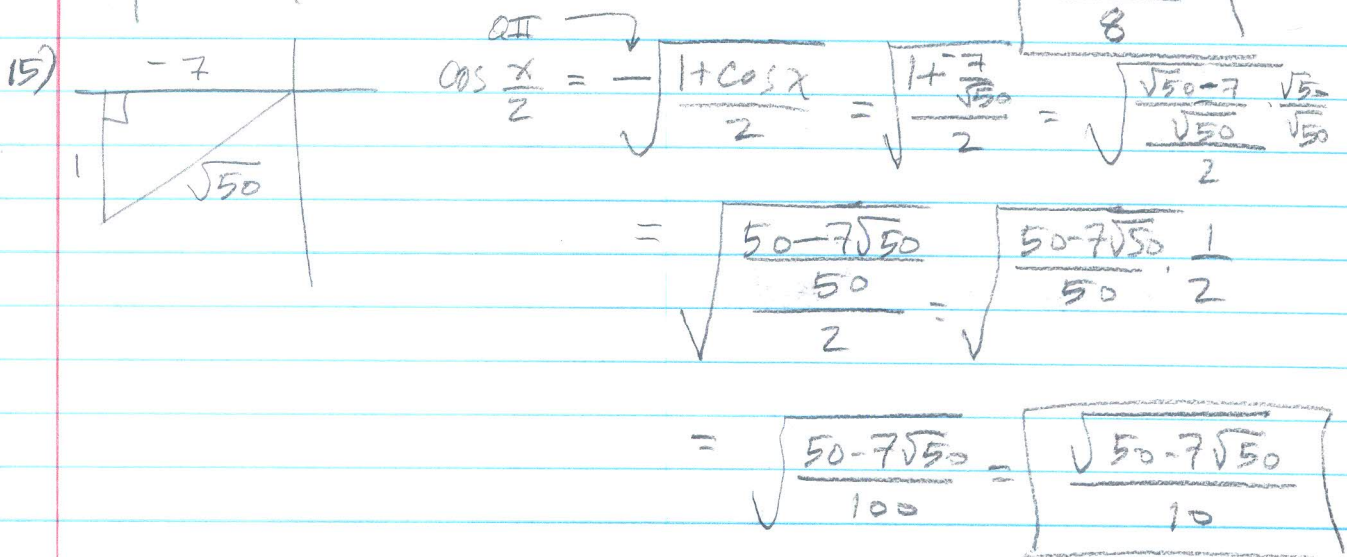 8
QII
15) -7 cos x/2 = -√((1+cosx)/2) = √((1+ -7/√50)/2) = √(((√50-7)/√50 · √50/√50)/2)
1 √50
= √(((50-7√50)/50)/2) = √((50-7√50)/50 · 1/2)
= √((50-7√50)/100) = √(50-7√50)/10